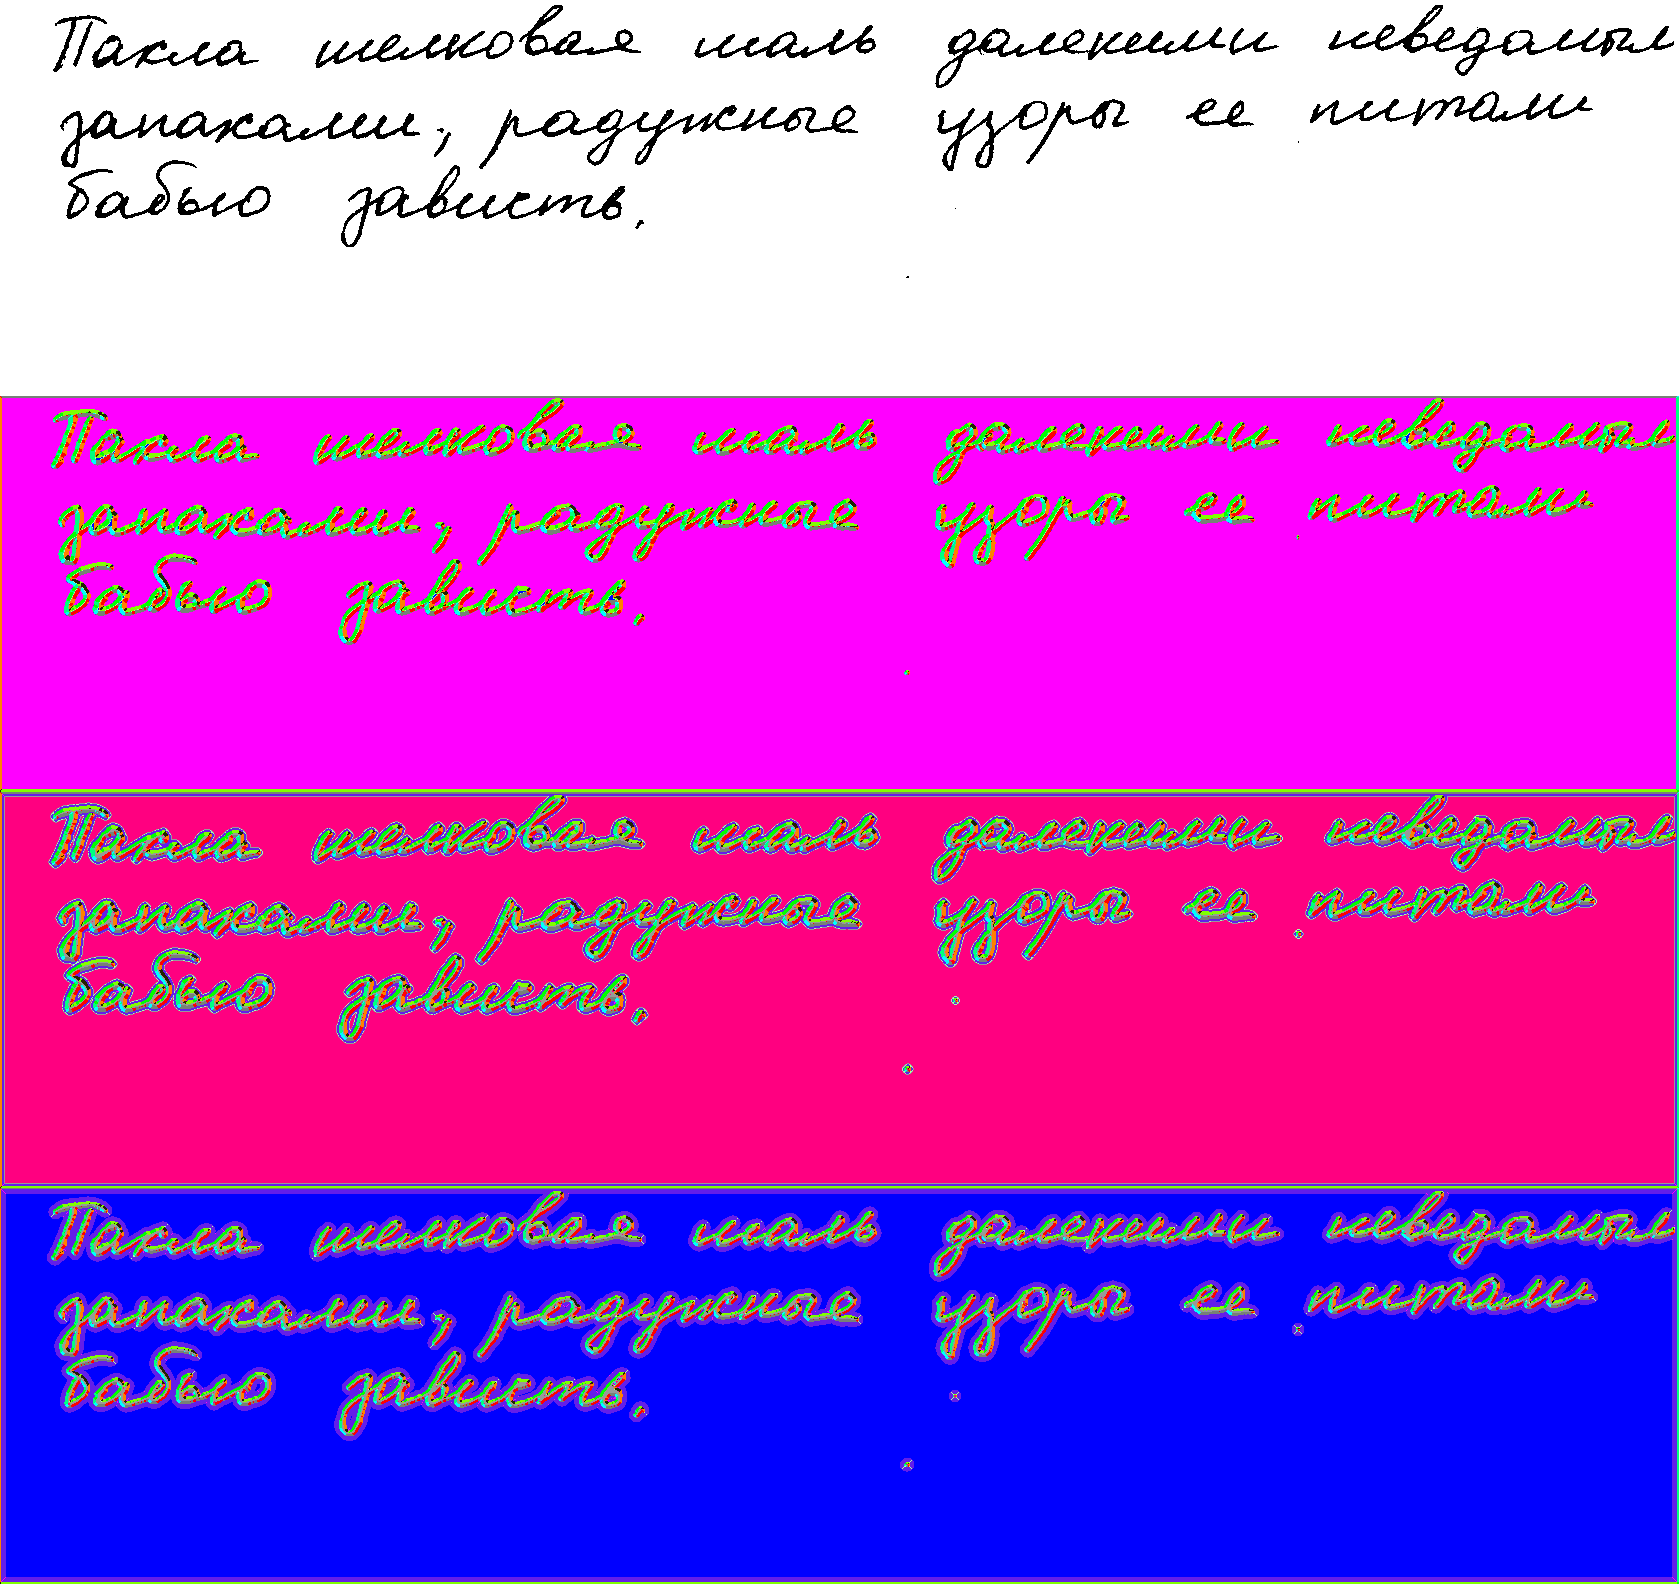 Пахла шелковая шаль далекими неведомым
запахами, радужные узоры ее питали
бабью зависть.
Пахла шелковая шаль далекими неведомым
запахами, радужные узоры ее питали
бабью зависть.
Пахла шелковая шаль далекими неведомым
запахами, радужные узоры ее питали
бабью зависть.
Пахла шелковая шаль далекими неведомым
запахами, радужные узоры ее питали
бабью зависть.